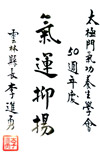 太極門氣功養生學會
50週年慶
氣運抑揚
雲林縣長李進勇